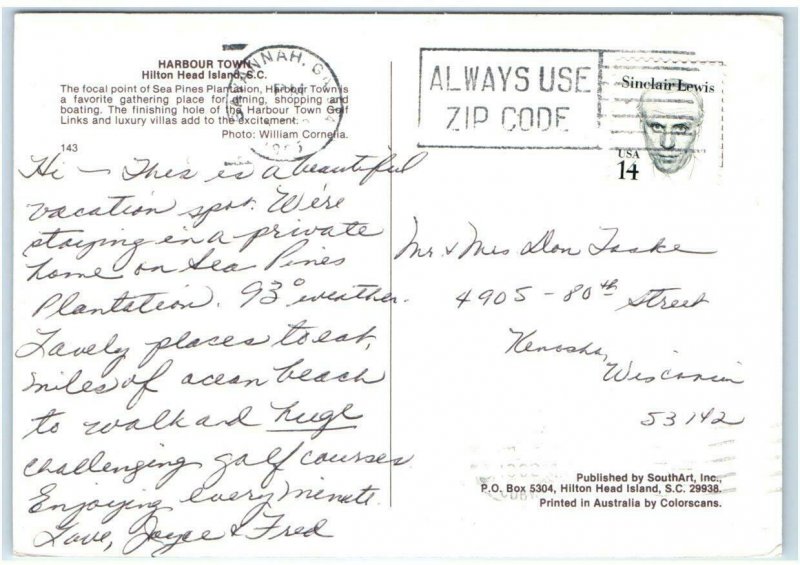 HARBOUR TOWN
Hilton Head Island, S.C.
The focal point of Sea Pines Plantation, Harbour Town is
a favorite gathering place for dining, shopping and
boating. The finishing hole of the Harbour Town Golf
Links and luxury villas add to the excitement.
Photo: William Cornelia.
143
SAVANNAH, GA
PM
ALWAYS USE
ZIP CODE
Sinclair Lewis
USA
14
Hi – This is a beautiful
vacation spot. We're
staying in a private
home on Sea Pines
Plantation. 93° weather.
Lovely places to eat,
miles of ocean beach
to walk and huge
challenging golf courses
Enjoying every minute.
Love, Joyce & Fred
Mr. & Mrs Don Taske
4905 - 80th Street
Kenosha,
Wisconsin
53142
Published by SouthArt, Inc.,
P.O. Box 5304, Hilton Head Island, S.C. 29938.
Printed in Australia by Colorscans.